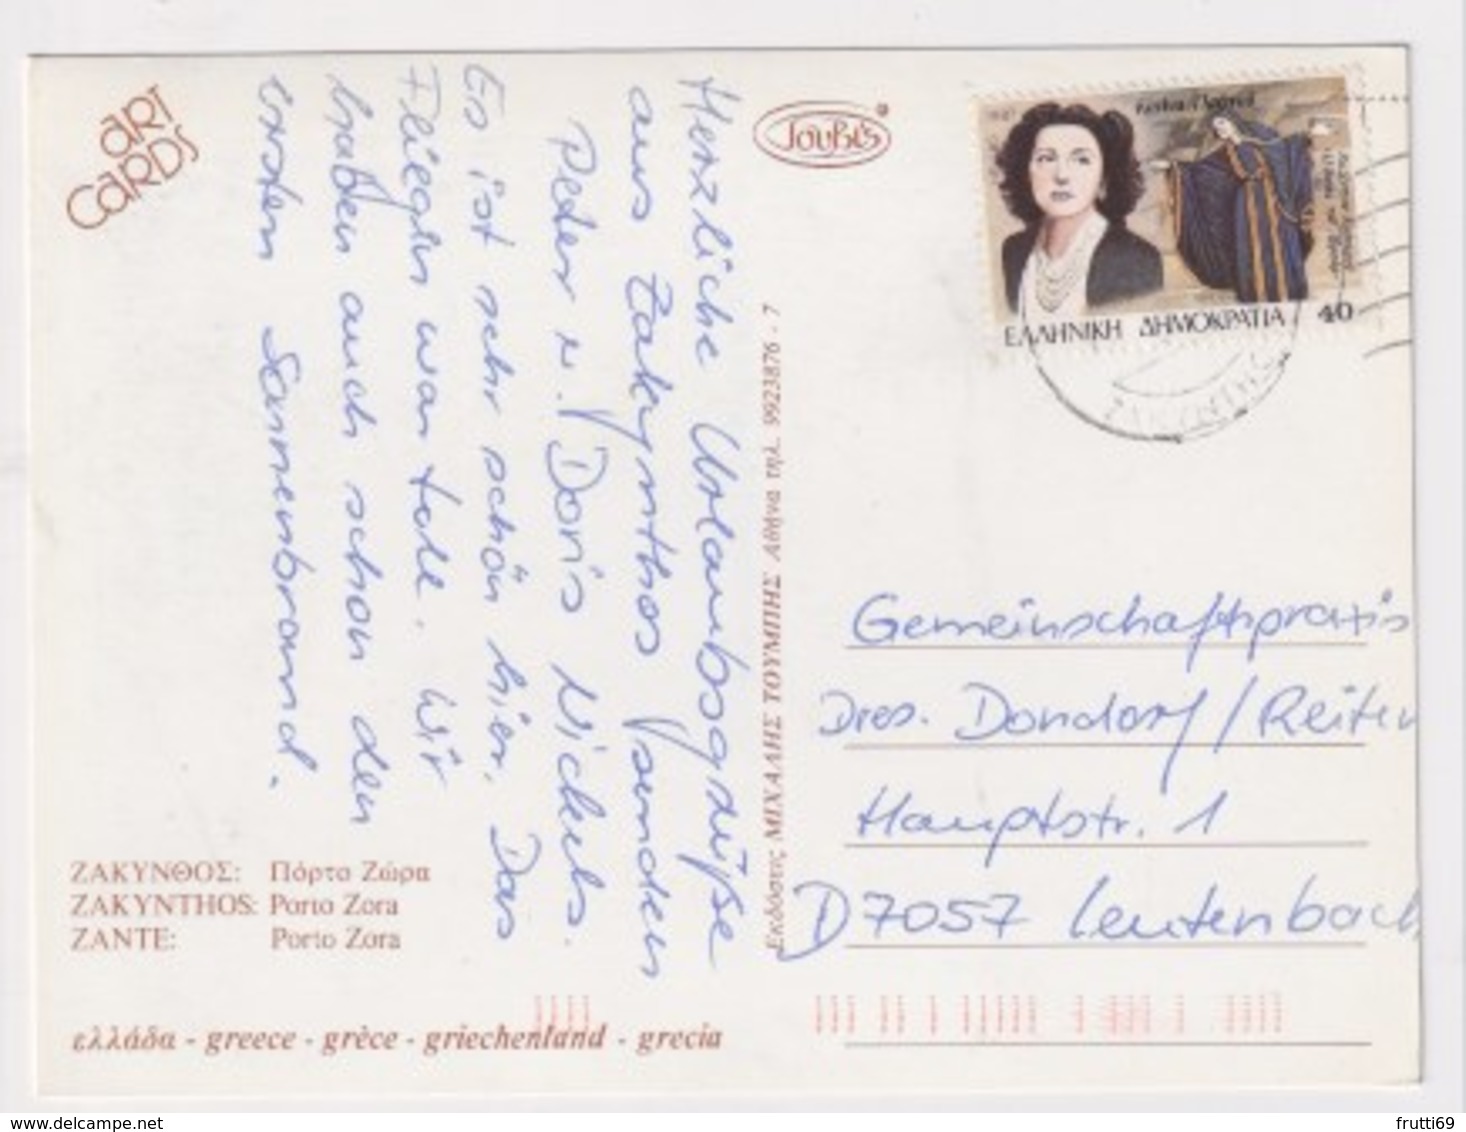 art
cards
Τουμπής
ΕΛΛΗΝΙΚΗ ΔΗΜΟΚΡΑΤΙΑ 40
Herzliche Urlaubsgrüße
aus Zakynthos senden
Peter u. Doris Nickels.
Es ist sehr schön hier. Das
Fliegen war toll. Wir
haben auch schon den
ersten Sonnenbrand.
Εκδόσεις ΜΙΧΑΛΗΣ ΤΟΥΜΠΗΣ Αθήνα τηλ. 9923876 - 7
Gemeinschaftspraxis
Dres. Dondorf / Reiter
Hauptstr. 1
D 7057 Leutenbach
ΖΑΚΥΝΘΟΣ: Πόρτο Ζώρα
ZAKYNTHOS: Porto Zora
ZANTE: Porto Zora
ελλάδα - greece - grèce - griechenland - grecia
www.delcampe.net
frutti69